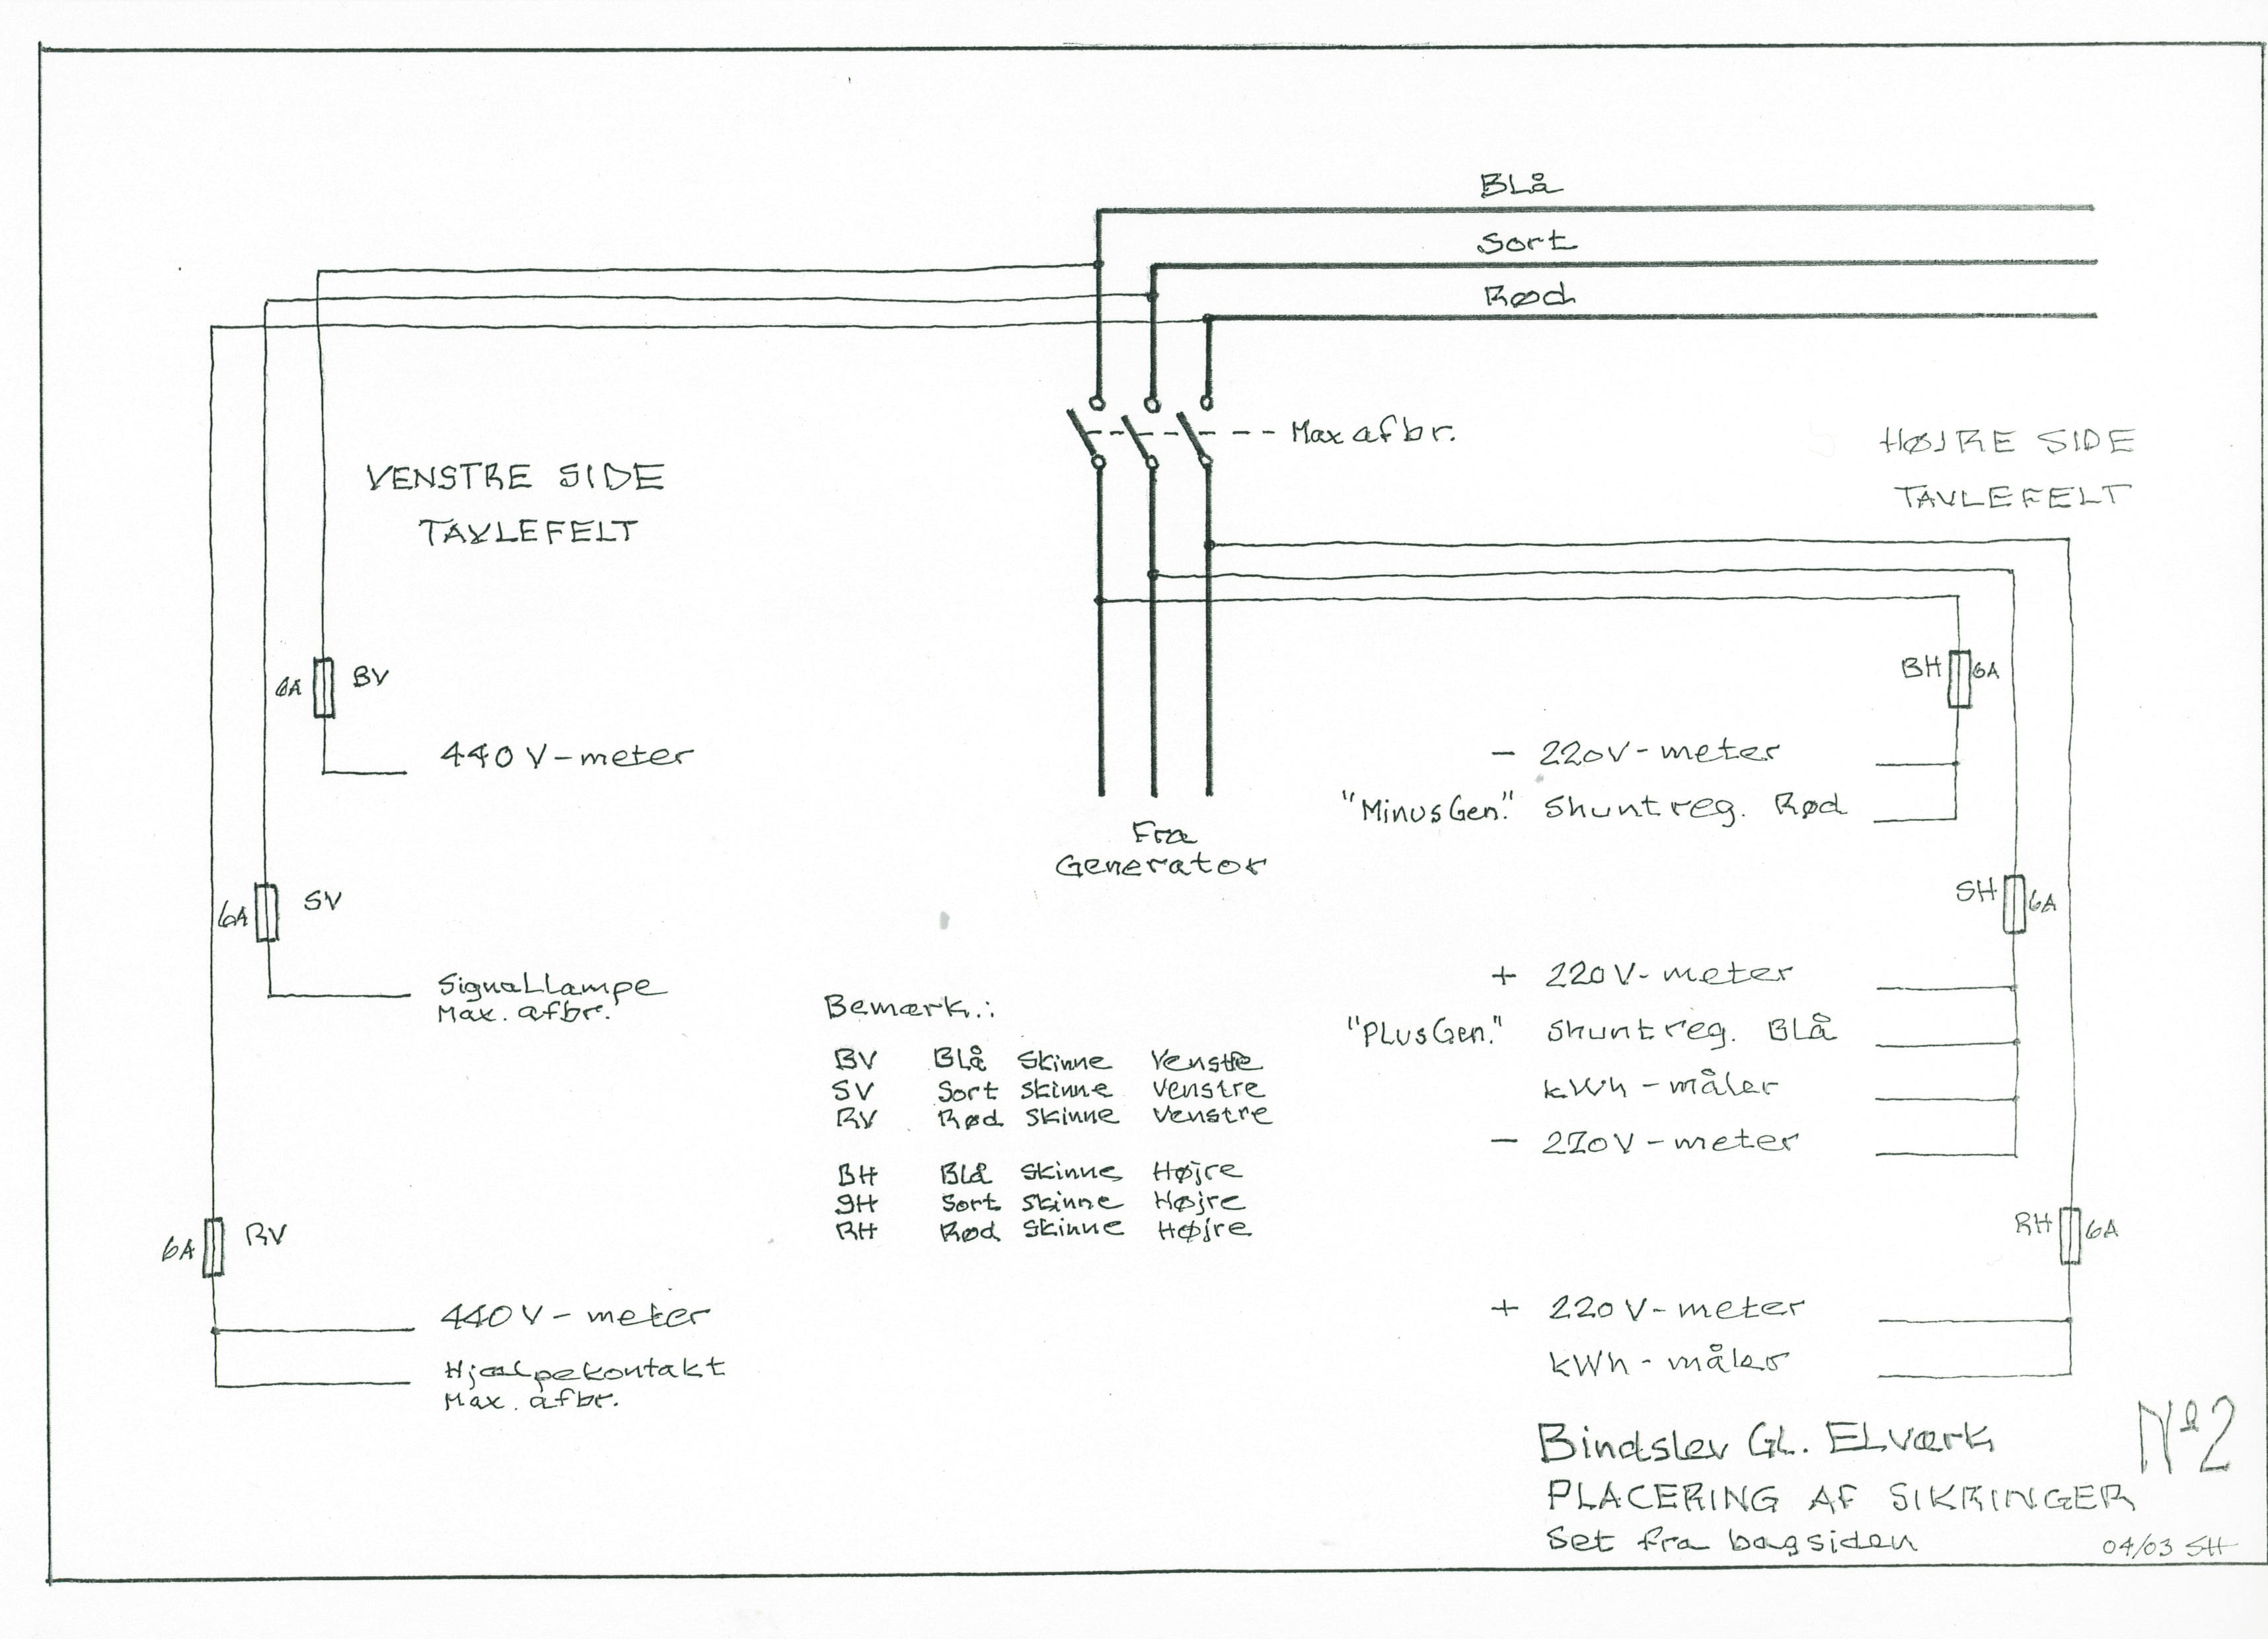 BLå
Sort
Rød
Max afbr.
VENSTRE SIDE
TAVLEFELT
HØJRE SIDE
TAVLEFELT
6A BV
440V-meter
6A SV
Signallampe
Max. afbr.
6A RV
440V-meter
Hjælpekontakt
Max. afbr.
Fra
Generator
Bemærk.:
BV Blå Skinne Venstre
SV Sort Skinne Venstre
RV Rød Skinne Venstre
BH Blå Skinne Højre
SH Sort Skinne Højre
RH Rød Skinne Højre
BH 6A
- 220V-meter
"MinusGen." Shuntreg. Rød
SH 6A
+ 220V-meter
"PLusGen." Shuntreg. BLå
kWh-måler
- 220V-meter
RH 6A
+ 220V-meter
kWh-måler
Bindslev GL. ELværk
PLACERING AF SIKRINGER
Set fra bagsiden
Nº2
04/03 SH